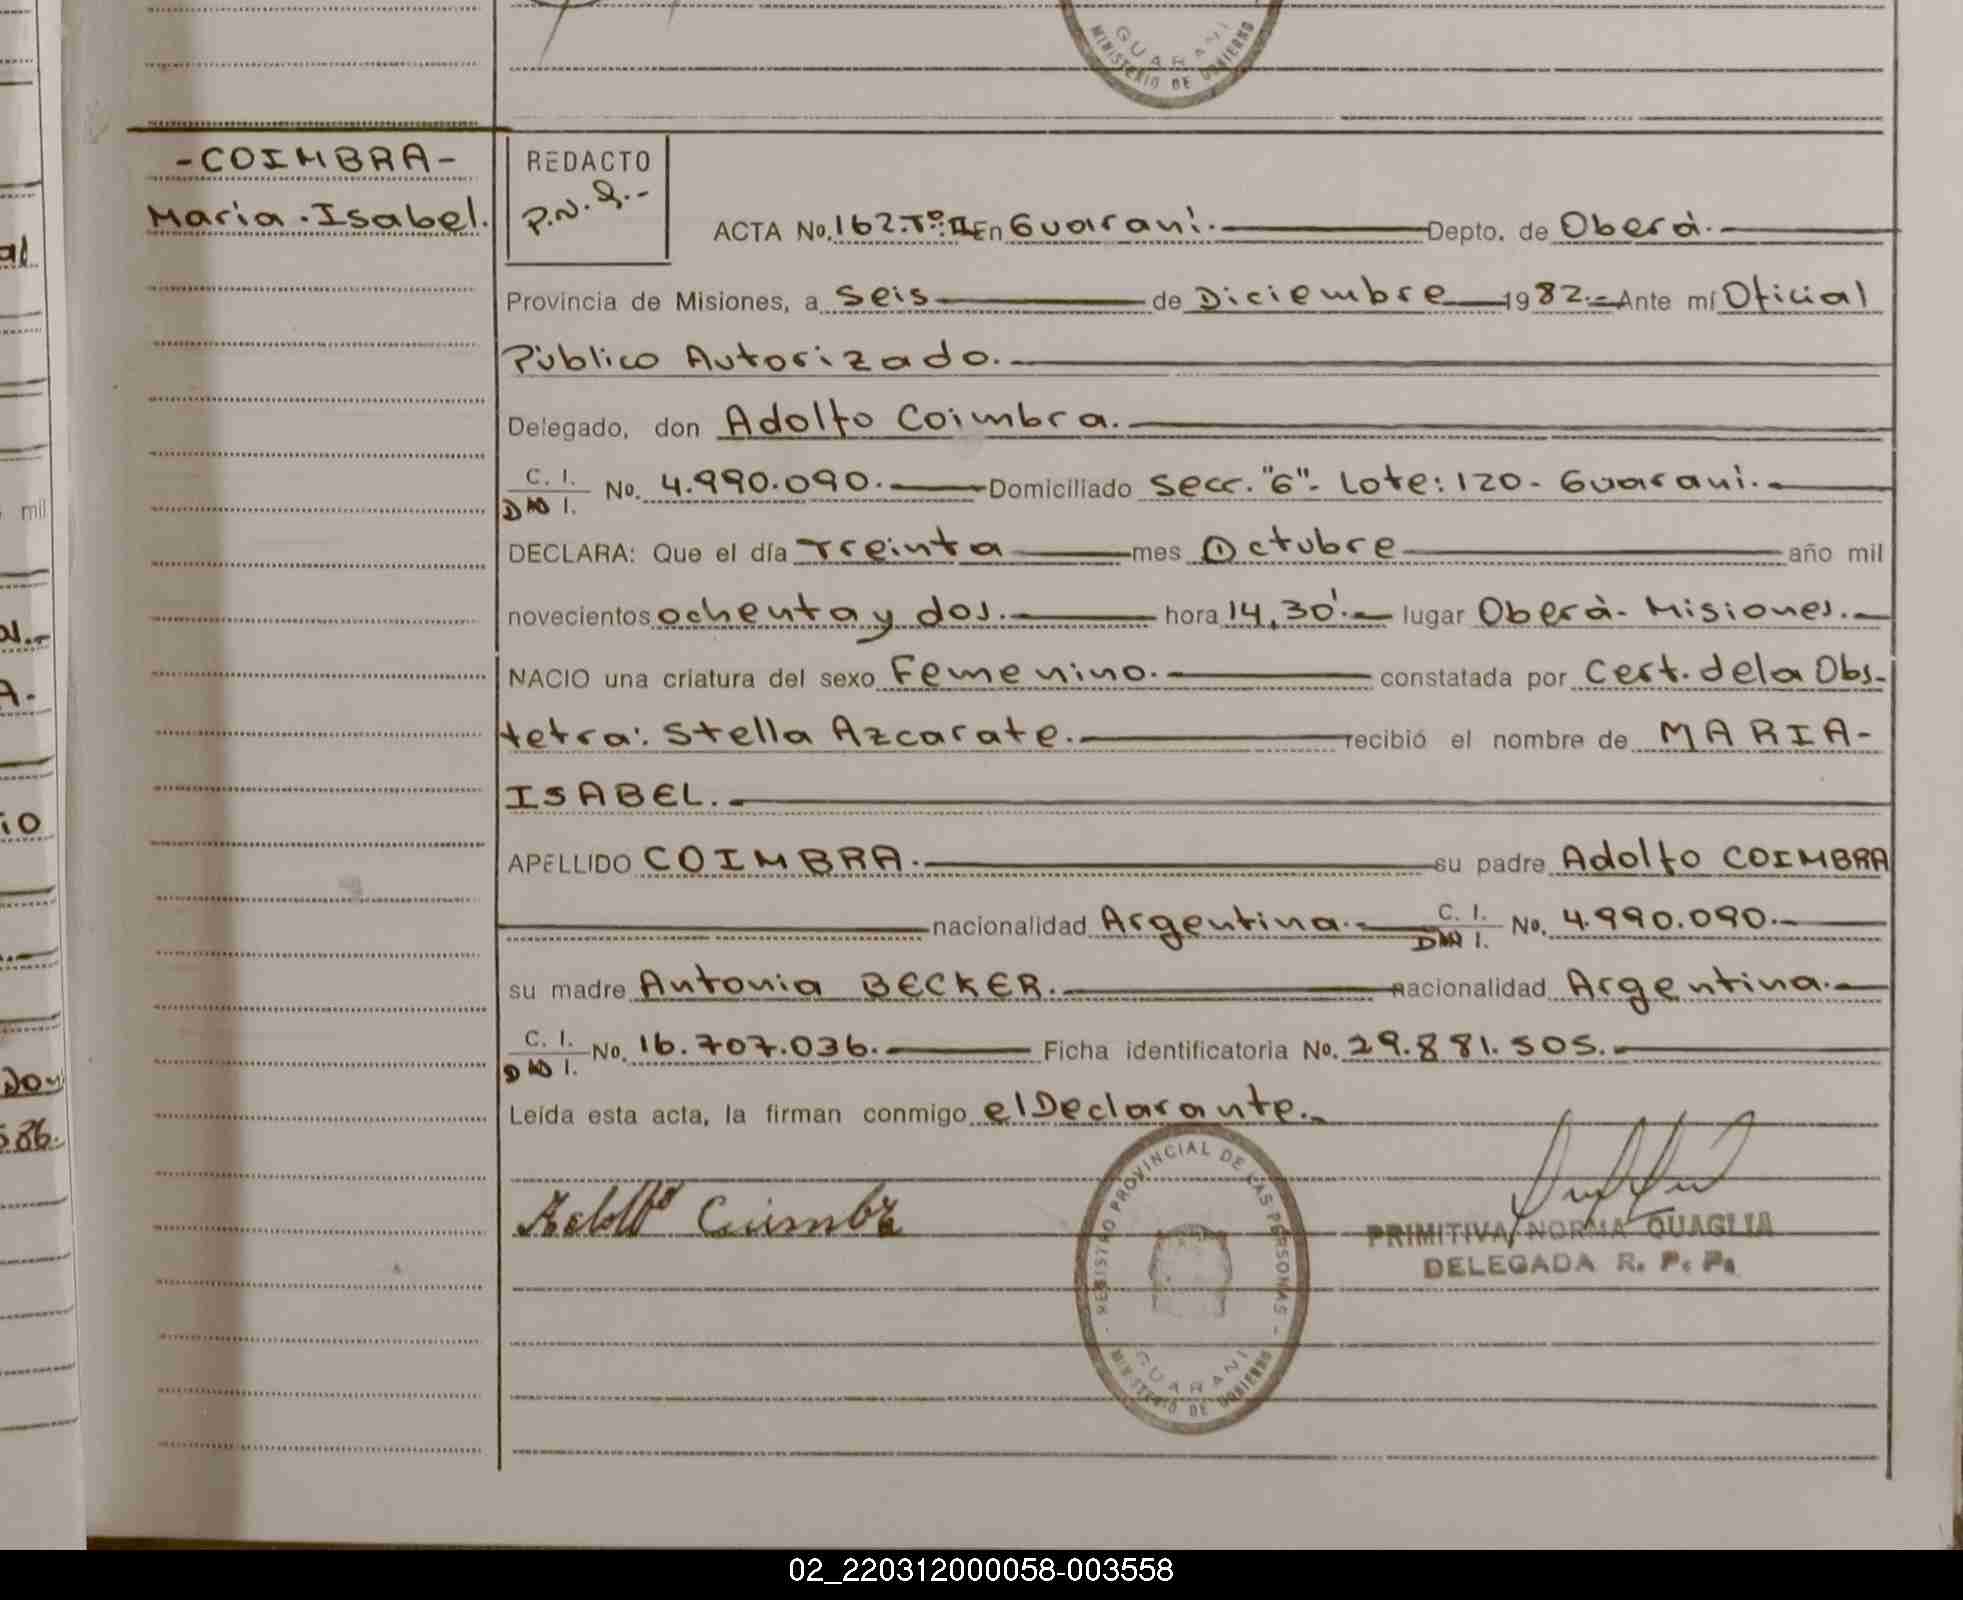 GUARANI
MINISTERIO DE GOBIERNO
-COIMBRA-
Maria.Isabel.
REDACTO
P.N.Q.-
ACTA No. 162.Tº:II En Guaraní. Depto. de Oberá.
Provincia de Misiones, a Seis de Diciembre 1982.- Ante mí Oficial
Público Autorizado.
Delegado, don Adolfo Coimbra.
C. I.
DNI I. No. 4.990.090. Domiciliado Secc. "6"- Lote: 120- Guaraní.
DECLARA: Que el día Treinta mes Octubre año mil
novecientos ochenta y dos. hora 14,30'. lugar Oberá- Misiones.
NACIO una criatura del sexo Femenino. constatada por Cert. de la Obs-
tetra: Stella Azcarate. recibió el nombre de MARIA-
ISABEL.
APELLIDO COIMBRA. su padre Adolfo COIMBRA
nacionalidad Argentina. C. I.
DNI I. No. 4.990.090.
su madre Antonia BECKER. nacionalidad Argentina.
C. I.
DNI I. No. 16.707.036. Ficha identificatoria No. 29.881.505.
Leída esta acta, la firman conmigo el Declarante.
REGISTRO PROVINCIAL DE LAS PERSONAS
GUARANI
MINISTERIO DE GOBIERNO
Adolfo Coimbra
PRIMITIVA NORMA QUAGLIA
DELEGADA R. P. P.
al
mil
A.-
io
Don
86.
02_220312000058-003558